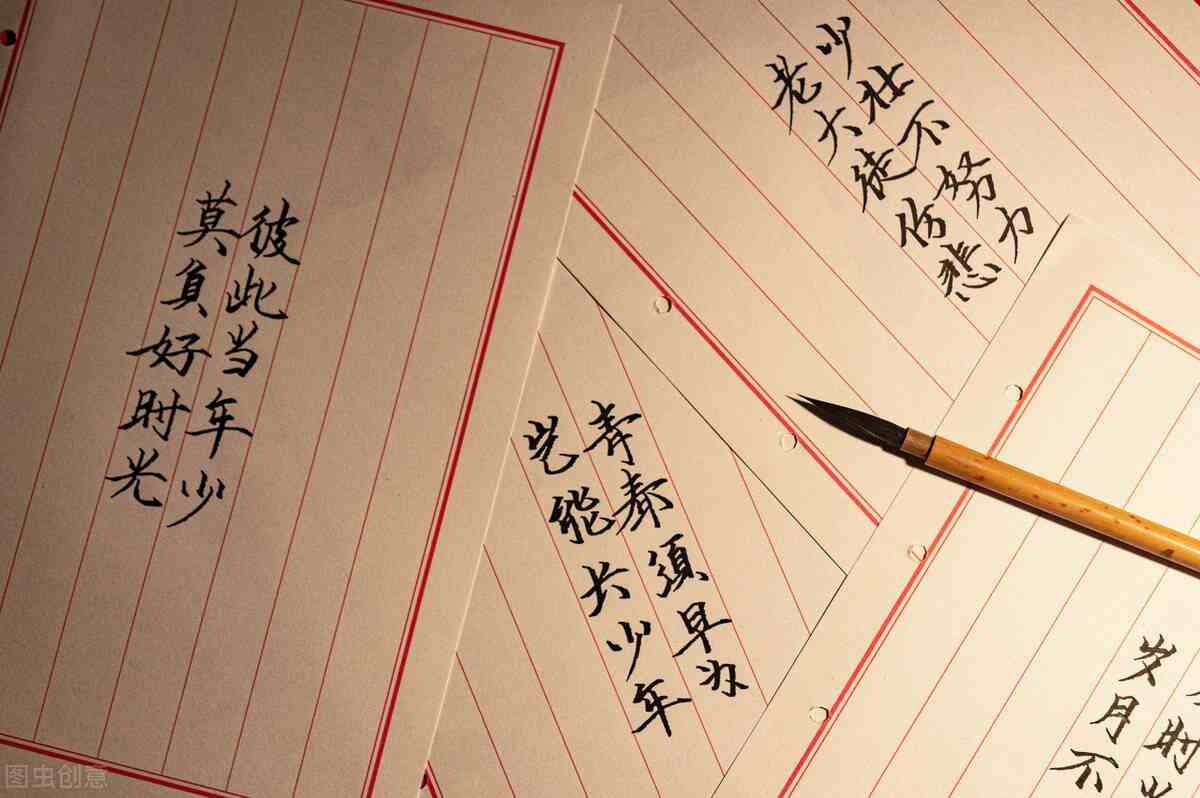 彼此当年少
莫負好时光
少壮不努力
老大徒伤悲
青春須早为
岂能长少年
时
岁月不
图虫创意